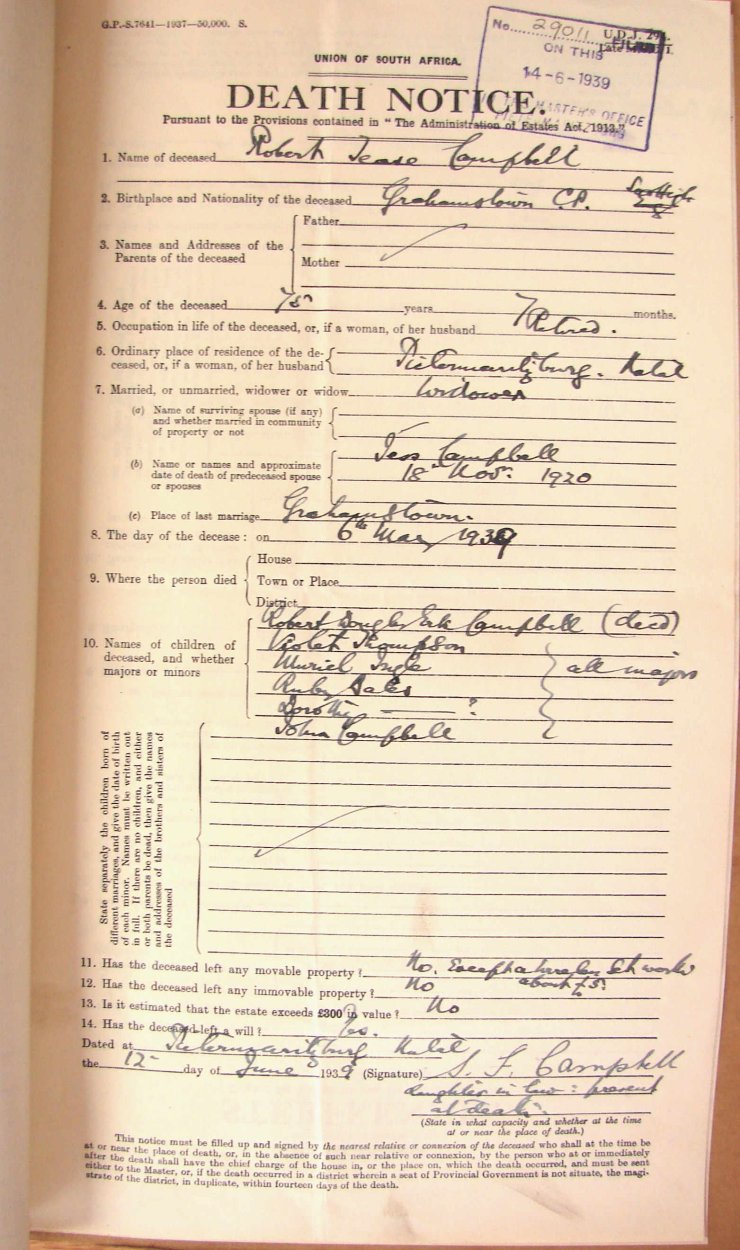 G.P.-S.7641—1937—50,000. S.
No. 29011 FILED
U.D.J. 294.
ON THIS
14-6-1939
MASTER'S OFFICE
UNION OF SOUTH AFRICA.
DEATH NOTICE.
Pursuant to the Provisions contained in "The Administration of Estates Act, 1913."
1. Name of deceased Robert Tease Campbell
2. Birthplace and Nationality of the deceased Grahamstown C.P.
3. Names and Addresses of the Parents of the deceased
Father
Mother
4. Age of the deceased 75 years 7 months.
5. Occupation in life of the deceased, or, if a woman, of her husband Retired.
6. Ordinary place of residence of the de-
ceased, or, if a woman, of her husband Pietermaritzburg. Natal
7. Married, or unmarried, widower or widow Widower
(a) Name of surviving spouse (if any)
and whether married in community
of property or not
(b) Name or names and approximate
date of death of predeceased spouse
or spouses
Jess Campbell
18th Nov. 1920
(c) Place of last marriage Grahamstown.
8. The day of the decease: on 6th May 1939
9. Where the person died
House
Town or Place
District
10. Names of children of
deceased, and whether
majors or minors
Robert Douglas Erk Campbell (decd)
Violet Thompson
Muriel Ingle
Ruby Gales
Dorothy — ?
John Campbell
all majors
State separately the children born of
different marriages, and give the date of birth
of each minor. Names must be written out
in full. If there are no children, and either
or both parents be dead, then give the names
and addresses of the brothers and sisters of
the deceased
11. Has the deceased left any movable property? No. Except a wireless Set worth
about £5.
12. Has the deceased left any immovable property? No
13. Is it estimated that the estate exceeds £300 in value? No
14. Has the deceased left a will? Yes.
Dated at Pietermaritzburg Natal
the 12th day of June 1939 (Signature) S. F. Campbell
daughter in law: present
at death.
(State in what capacity and whether at the time
at or near the place of death.)
This notice must be filled up and signed by the nearest relative or connexion of the deceased who shall at the time be
at or near the place of death, or, in the absence of such near relative or connexion, by the person who at or immediately
after the death shall have the chief charge of the house in, or the place on, which the death occurred, and must be sent
either to the Master, or, if the death occurred in a district wherein a seat of Provincial Government is not situate, the magi-
strate of the district, in duplicate, within fourteen days of the death.